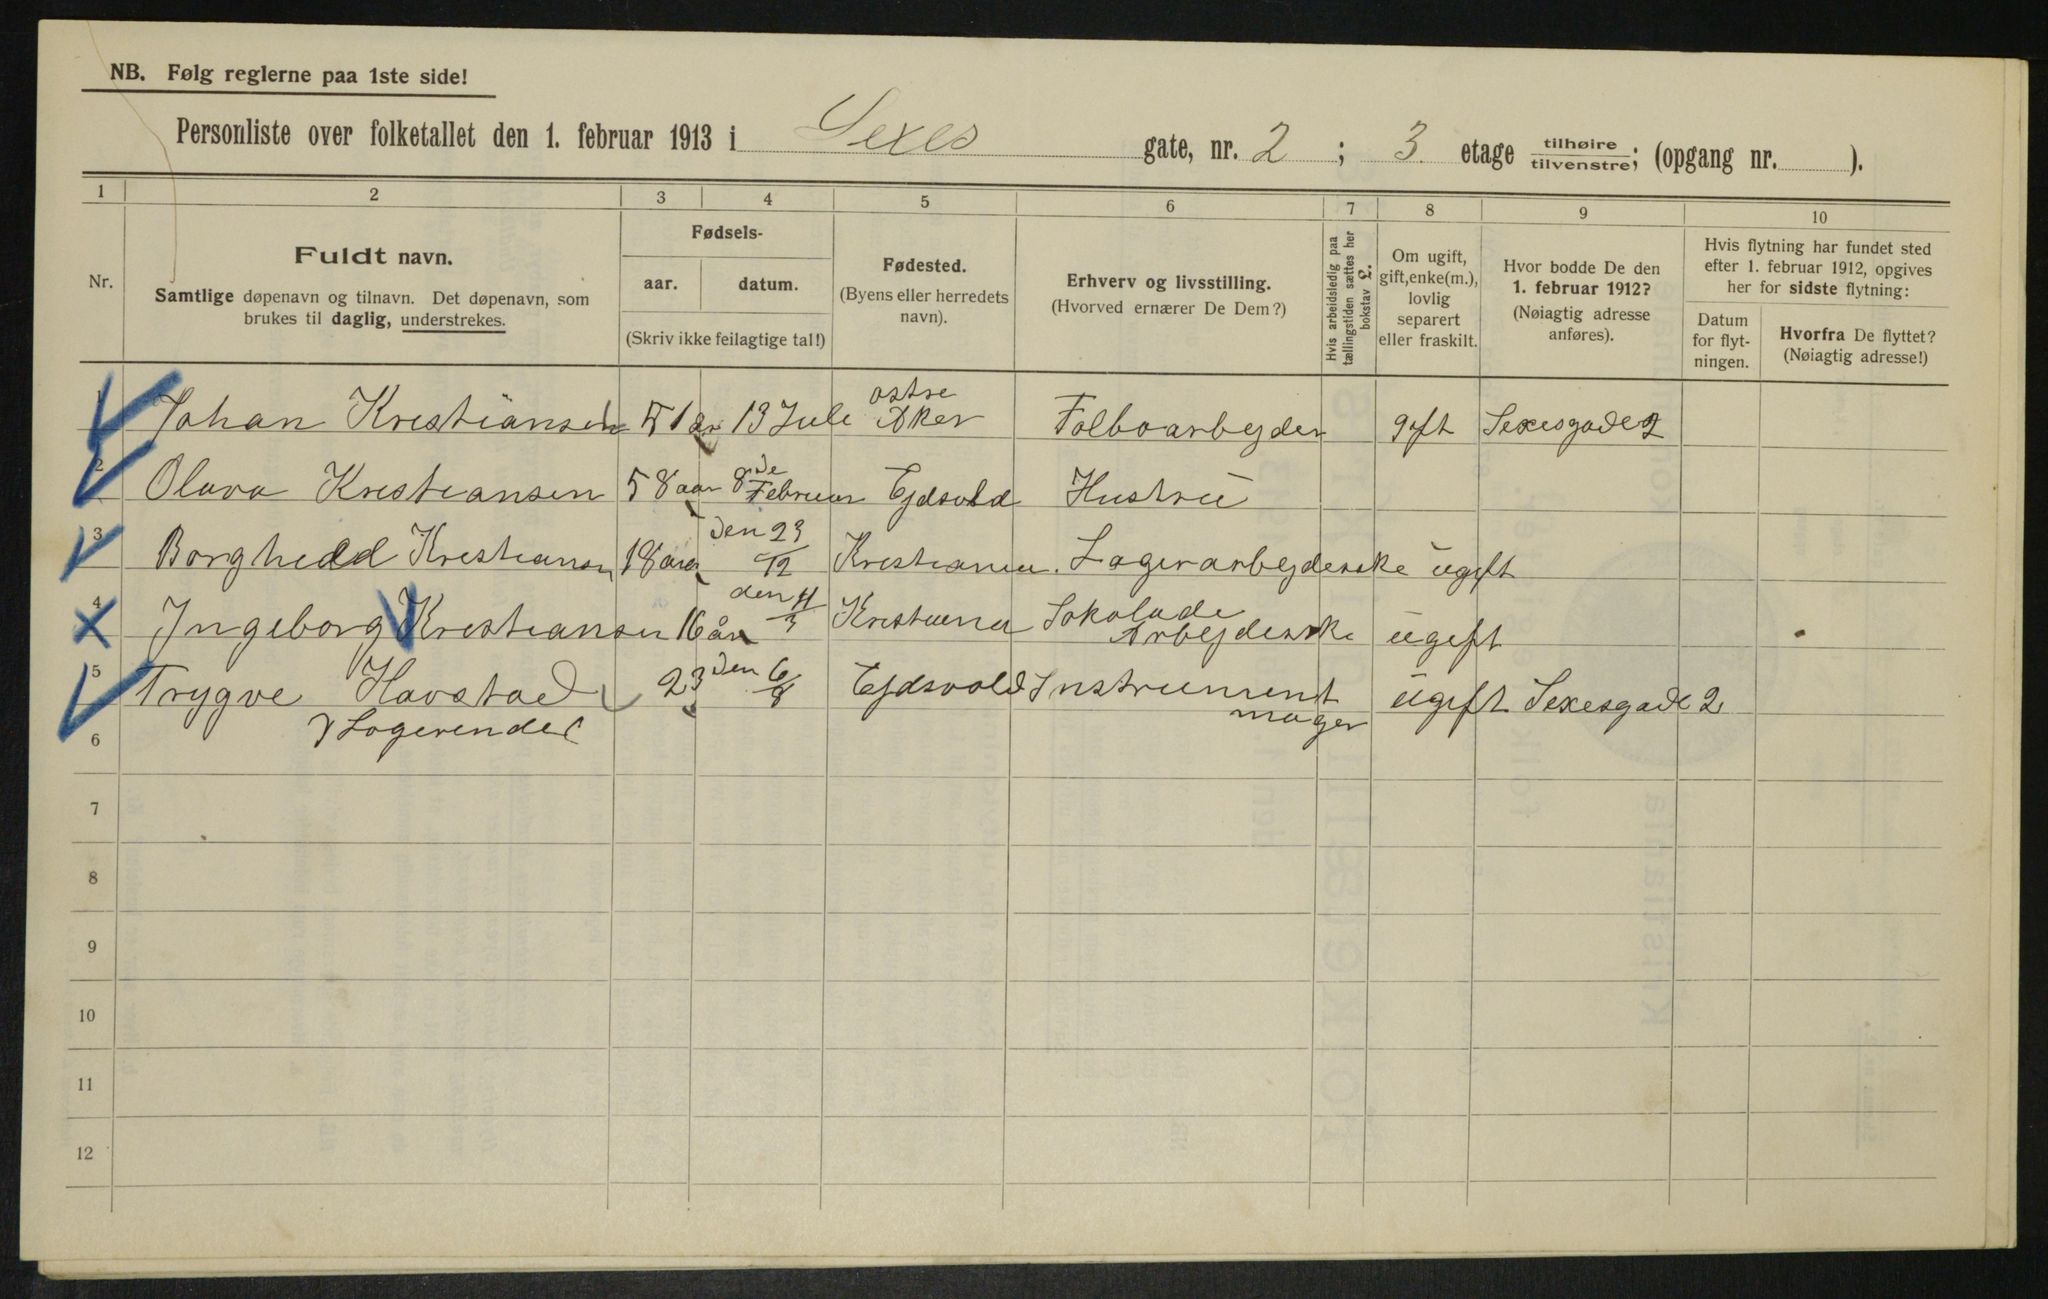 NB. Følg reglerne paa 1ste side!
Personliste over folketallet den 1. februar 1913 i Sexes gate, nr. 2 ; 3. etage tilhøire/tilvenstre; (opgang nr. ).
1 2 3 4 5 6 7 8 9 10
Nr.
Fuldt navn.
Samtlige døpenavn og tilnavn. Det døpenavn, som
brukes til daglig, understrekes.
Fødsels-
aar. datum.
(Skriv ikke feilagtige tal!)
Fødested.
(Byens eller herredets
navn).
Erhverv og livsstilling.
(Hvorved ernærer De Dem?)
Hvis arbeidsledig paa
tællingstiden sættes her
bokstav L.
Om ugift,
gift, enke(m.),
lovlig
separert
eller fraskilt.
Hvor bodde De den
1. februar 1912?
(Nøiagtig adresse
anføres).
Hvis flytning har fundet sted
efter 1. februar 1912, opgives
her for sidste flytning:
Datum
for flyt-
ningen.
Hvorfra De flyttet?
(Nøiagtig adresse!)
1 Johan Kristiansen 51 ar 13 Juli ostre Aker Folboarbejder gift Sexesgade 2
2 Olava Kristiansen 58 aar 8 de Februar Ejdsvold Hustru
3 Borghild Kristiansen 18 aar den 23/12 Kristiania Lagerarbejderske ugift
4 Ingeborg Kristiansen 16 år den 11/3 Kristiania Sokolade Arbejderske ugift
5 Trygve Havstad 23 den 6/8 Ejdsvold Instrument mager ugift Sexesgade 2
6 Logerende
7
8
9
10
11
12